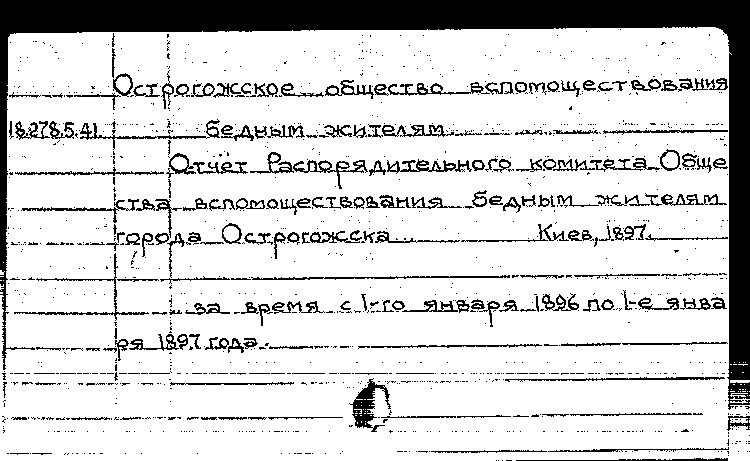 Острогожское общество вспомоществования
18.278.5.41. бедным жителям
Отчет Распорядительного комитета Обще
ства вспомоществования бедным жителям
города Острогожска Киев, 1897.
за время с 1-го января 1896 по 1-е янва
ря 1897 года.